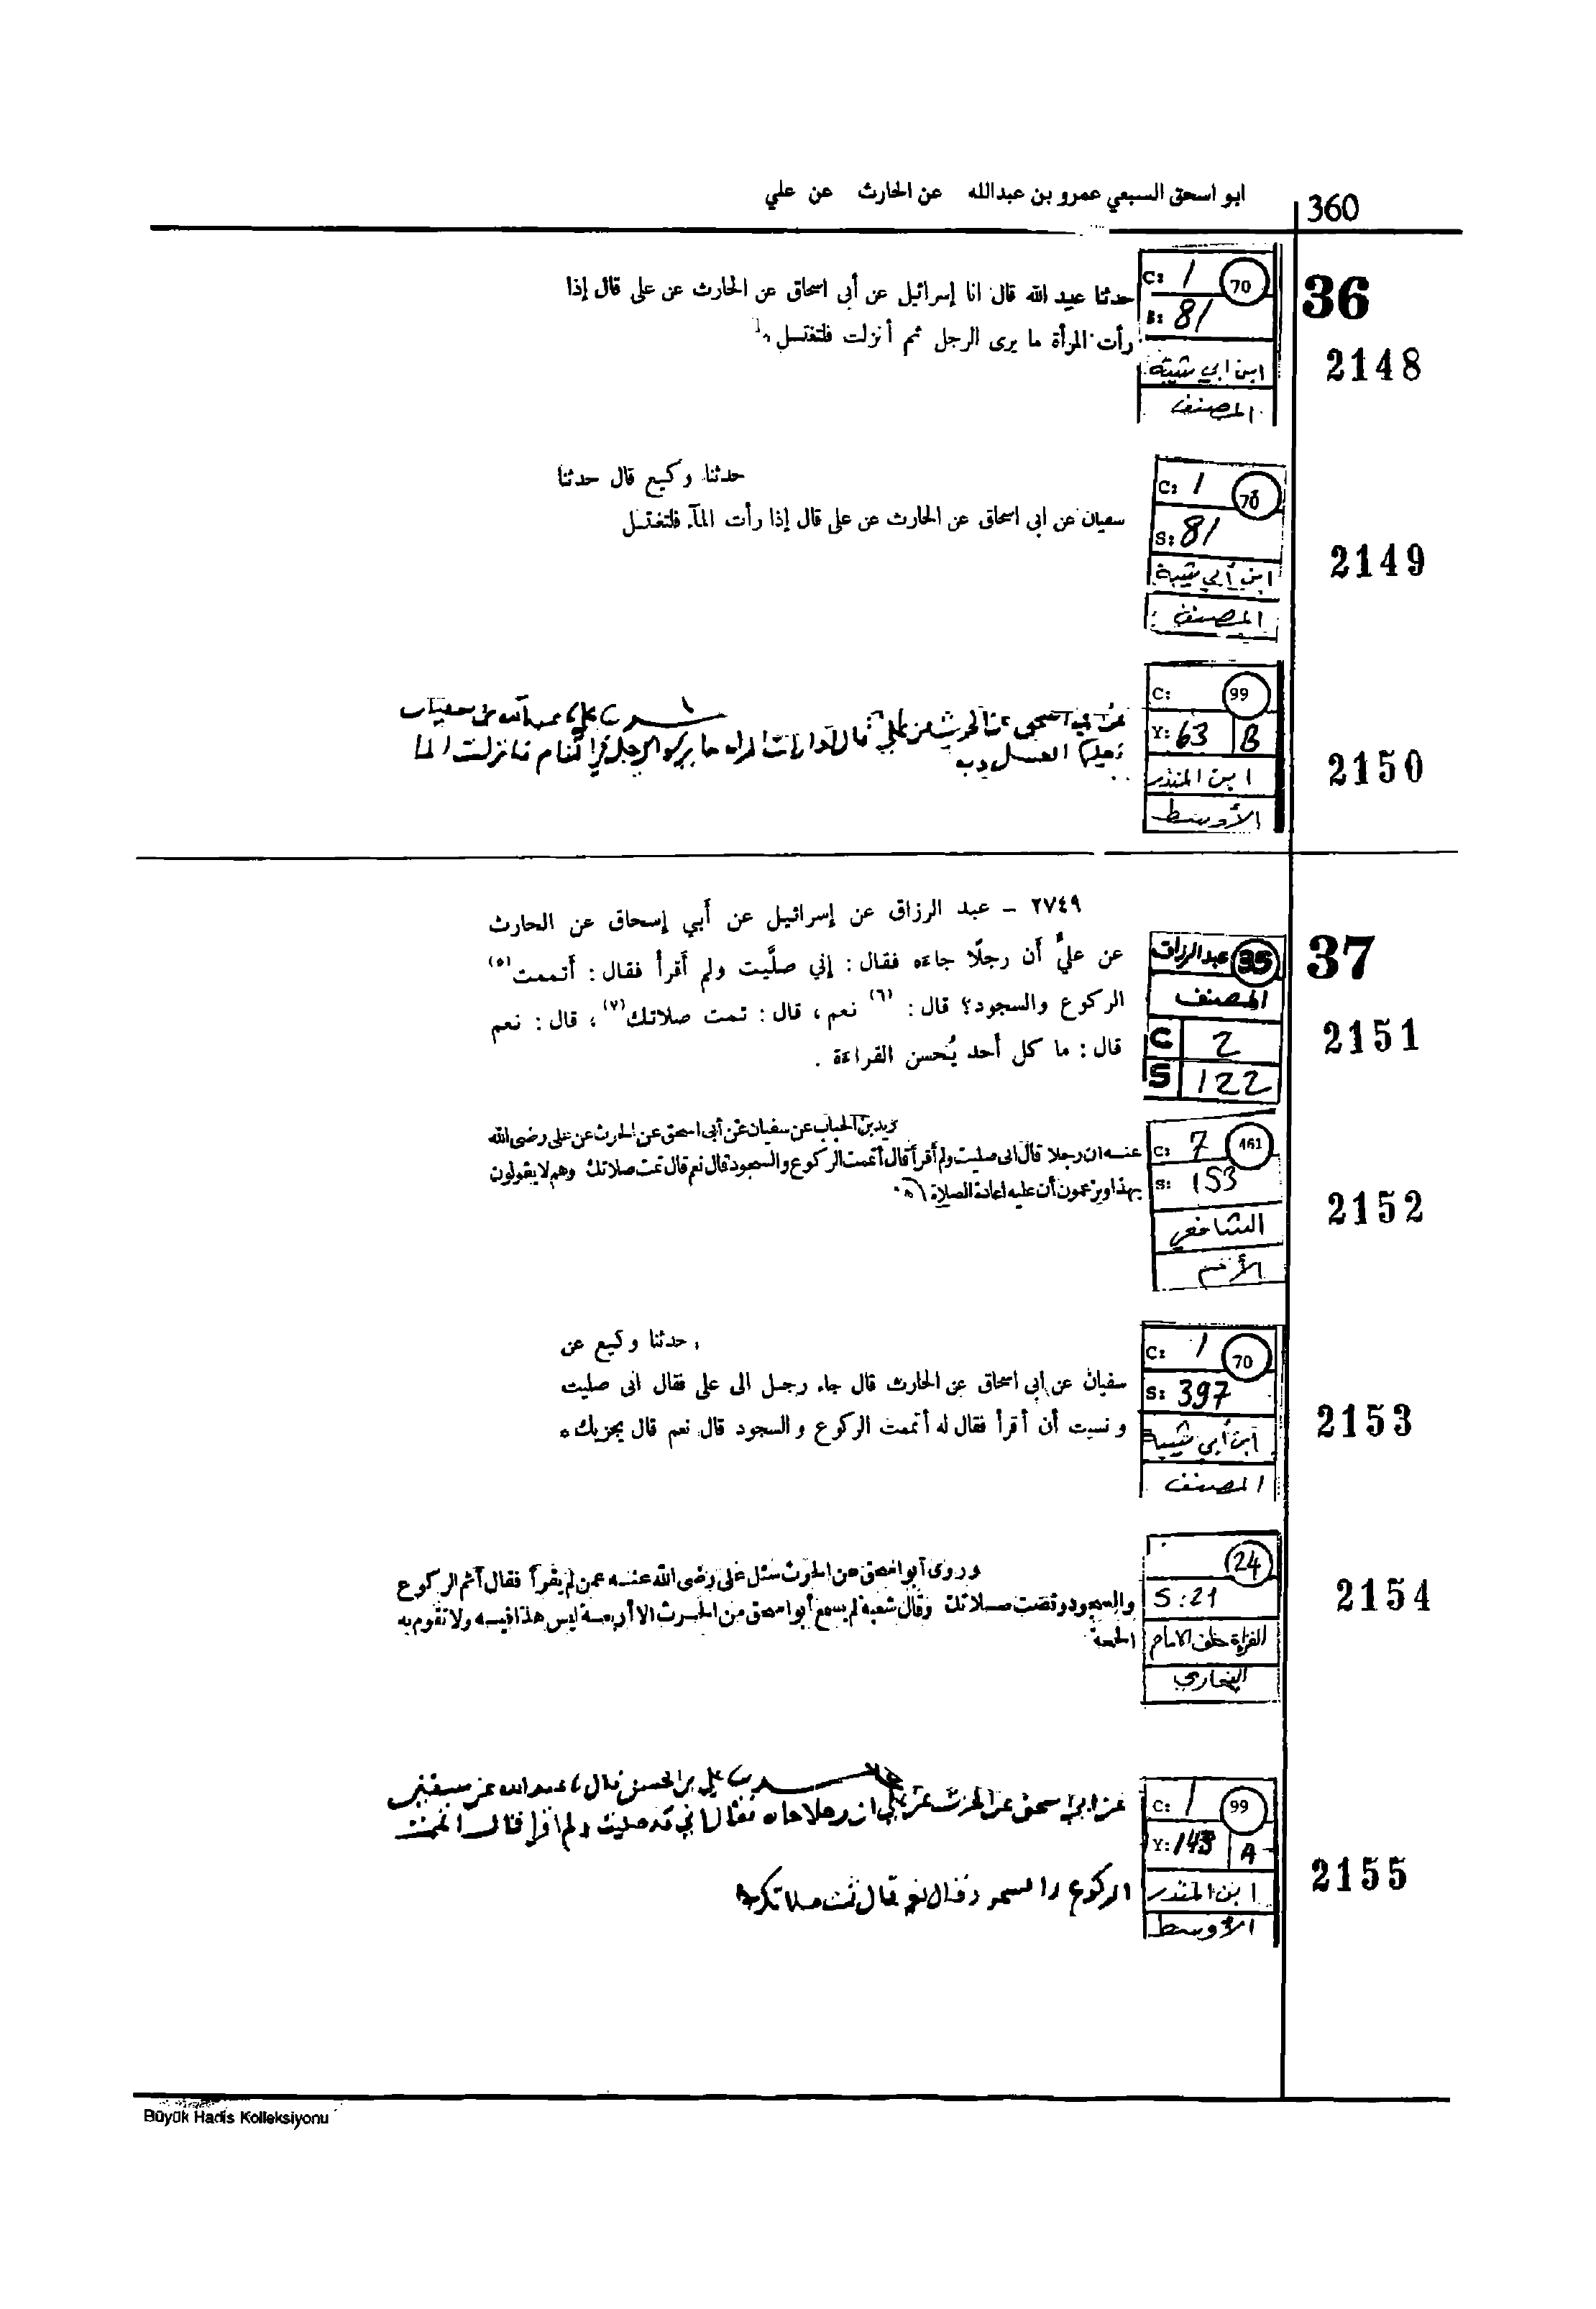 ابو اسحق السبعي عمرو بن عبدالله عن الحارث عن علي
360
36
2148
C: 1 70
S: 81
ابن ابي شيبة
المصنف
حدثنا عبيد الله قال انا إسرائيل عن أبى اسحاق عن الحارث عن على قال إذا
رأت المرأة ما يرى الرجل ثم أنزلت فلتغتسل
2149
C: 1 70
S: 81
ابن أبي شيبة
المصنف
حدثنا وكيع قال حدثنا
سفيان عن ابى اسحاق عن الحارث عن على قال إذا رأت المآء فلتغتسل
2150
C: 99
Y: 63 B
ابن المنذر
الأوسط
عن ابي اسحق عن الحرث عن علي قال اذا رات المراه ما يرى الرجل في المنام فانزلت الما
فعليها الغسل
37
2151
عبدالرزاق 35
المصنف
C 2
S 122
٢٧٤٩ - عبد الرزاق عن إسرائيل عن أبي إسحاق عن الحارث
عن عليّ أن رجلًا جاءه فقال: إني صلَّيت ولم أقرأ فقال: أتممت (٥)
الركوع والسجود؟ قال: (٦) نعم، قال: تمت صلاتك (٧)، قال: نعم
قال: ما كل أحد يُحسن القراءة .
2152
C: 7 461
S: 153
الشافعي
الأم
زيد بن الحباب عن سفيان عن أبى اسحق عن الحرث عن على رضى الله
عنه ان رجلا قال انى صليت ولم أقرأ قال أتممت الركوع والسجود قال نعم قال تمت صلاتك وهم لا يقولون
بهذا ويزعمون أن عليه اعادة الصلاة
2153
C: 1 70
S: 397
ابن أبي شيبة
المصنف
حدثنا وكيع عن
سفيان عن أبى اسحاق عن الحارث قال جاء رجل الى على فقال انى صليت
و نسيت أن أقرأ فقال له أتممت الركوع و السجود قال نعم قال يجزيك
2154
24
S: 21
القراءة خلف الامام
البخاري
وروى أبو اسحق عن الحرث سئل على رضى الله عنه عمن لم يقرأ فقال أتم الركوع
والسجود وقضت صلاتك وقال شعبة لم يسمع أبو اسحق من الحرث الا أربعة ليس هذا فيه ولا تقوم به
الحجة
2155
C: 1 99
Y: 143 A
ابن المنذر
الأوسط
علي بن الحسن قال عبد الله عن سفين
عن ابي اسحق عن الحرث عن علي ان رجلا جاه فقال اني قد صليت ولم اقرا قال اتممت
الركوع والسجود قال نعم قال تمت صلاتك
Büyük Hadis Kolleksiyonu